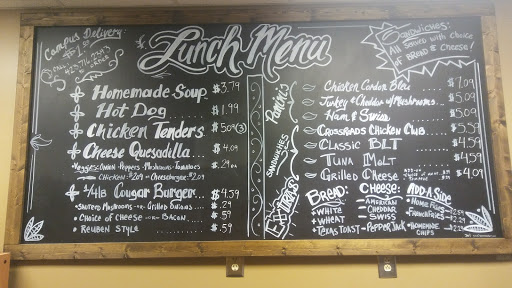 Campus Delivery
$1.50
Lunch Menu
Sandwiches:
All Served with Choice
of Bread & Cheese!
Homemade Soup $3.79
Hot Dog $1.99
Chicken Tenders $5.09(3)
Cheese Quesadilla $4.09
Veggies: Onion - Peppers - Mushrooms - Tomatoes .29 ea
Chicken $2.09 or Cheeseburger $2.09
1/4lb Cougar Burger $4.59
Sauteed Mushrooms or Grilled Onions .29
Choice of Cheese or Bacon .59
Reuben Style .59
Panini's
Sandwiches
Texas Toast
Chicken Cordon Bleu $7.09
Turkey & Cheddar w/ Mushrooms $5.09
Ham & Swiss $5.09
Crossroads Chicken Club $5.59
Classic BLT $4.59
Tuna Melt $4.59
Grilled Cheese $4.09
Bread:
White
Wheat
Texas Toast
Cheese:
American
Cheddar
Swiss
Pepper Jack
Add A Side
Home Fries
French Fries $2.29
Homemade Chips $2.29